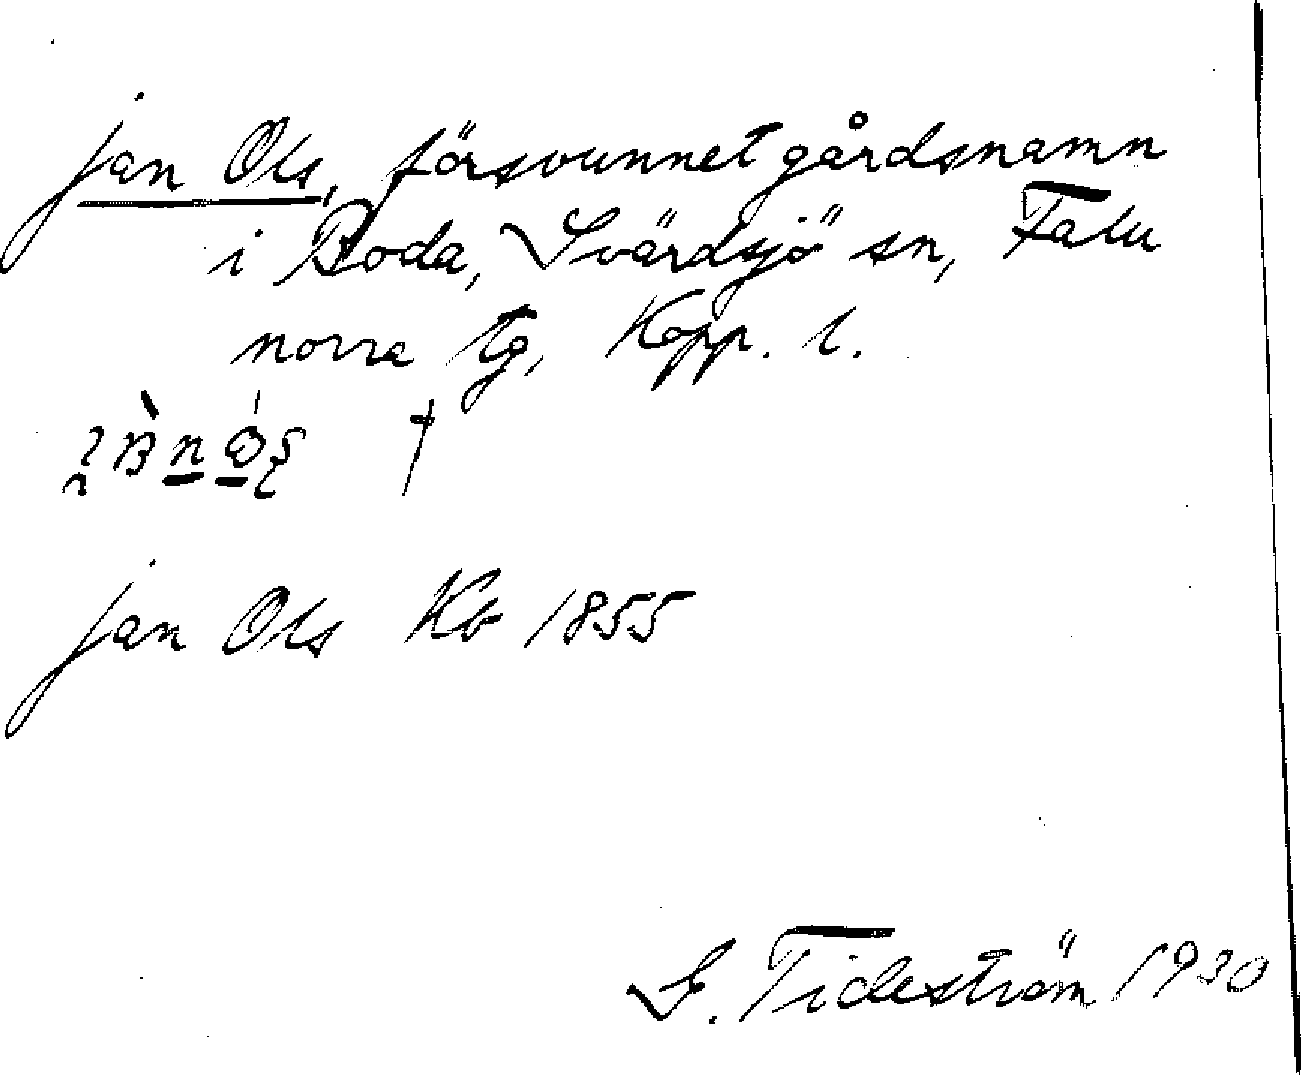 jan Ols, försvunnet gårdsnamn
i Boda, Svärdsjö sn, Falu
norra tg, Kopp. l.
†
jan Ols Kb 1855
G. Tideström 1930